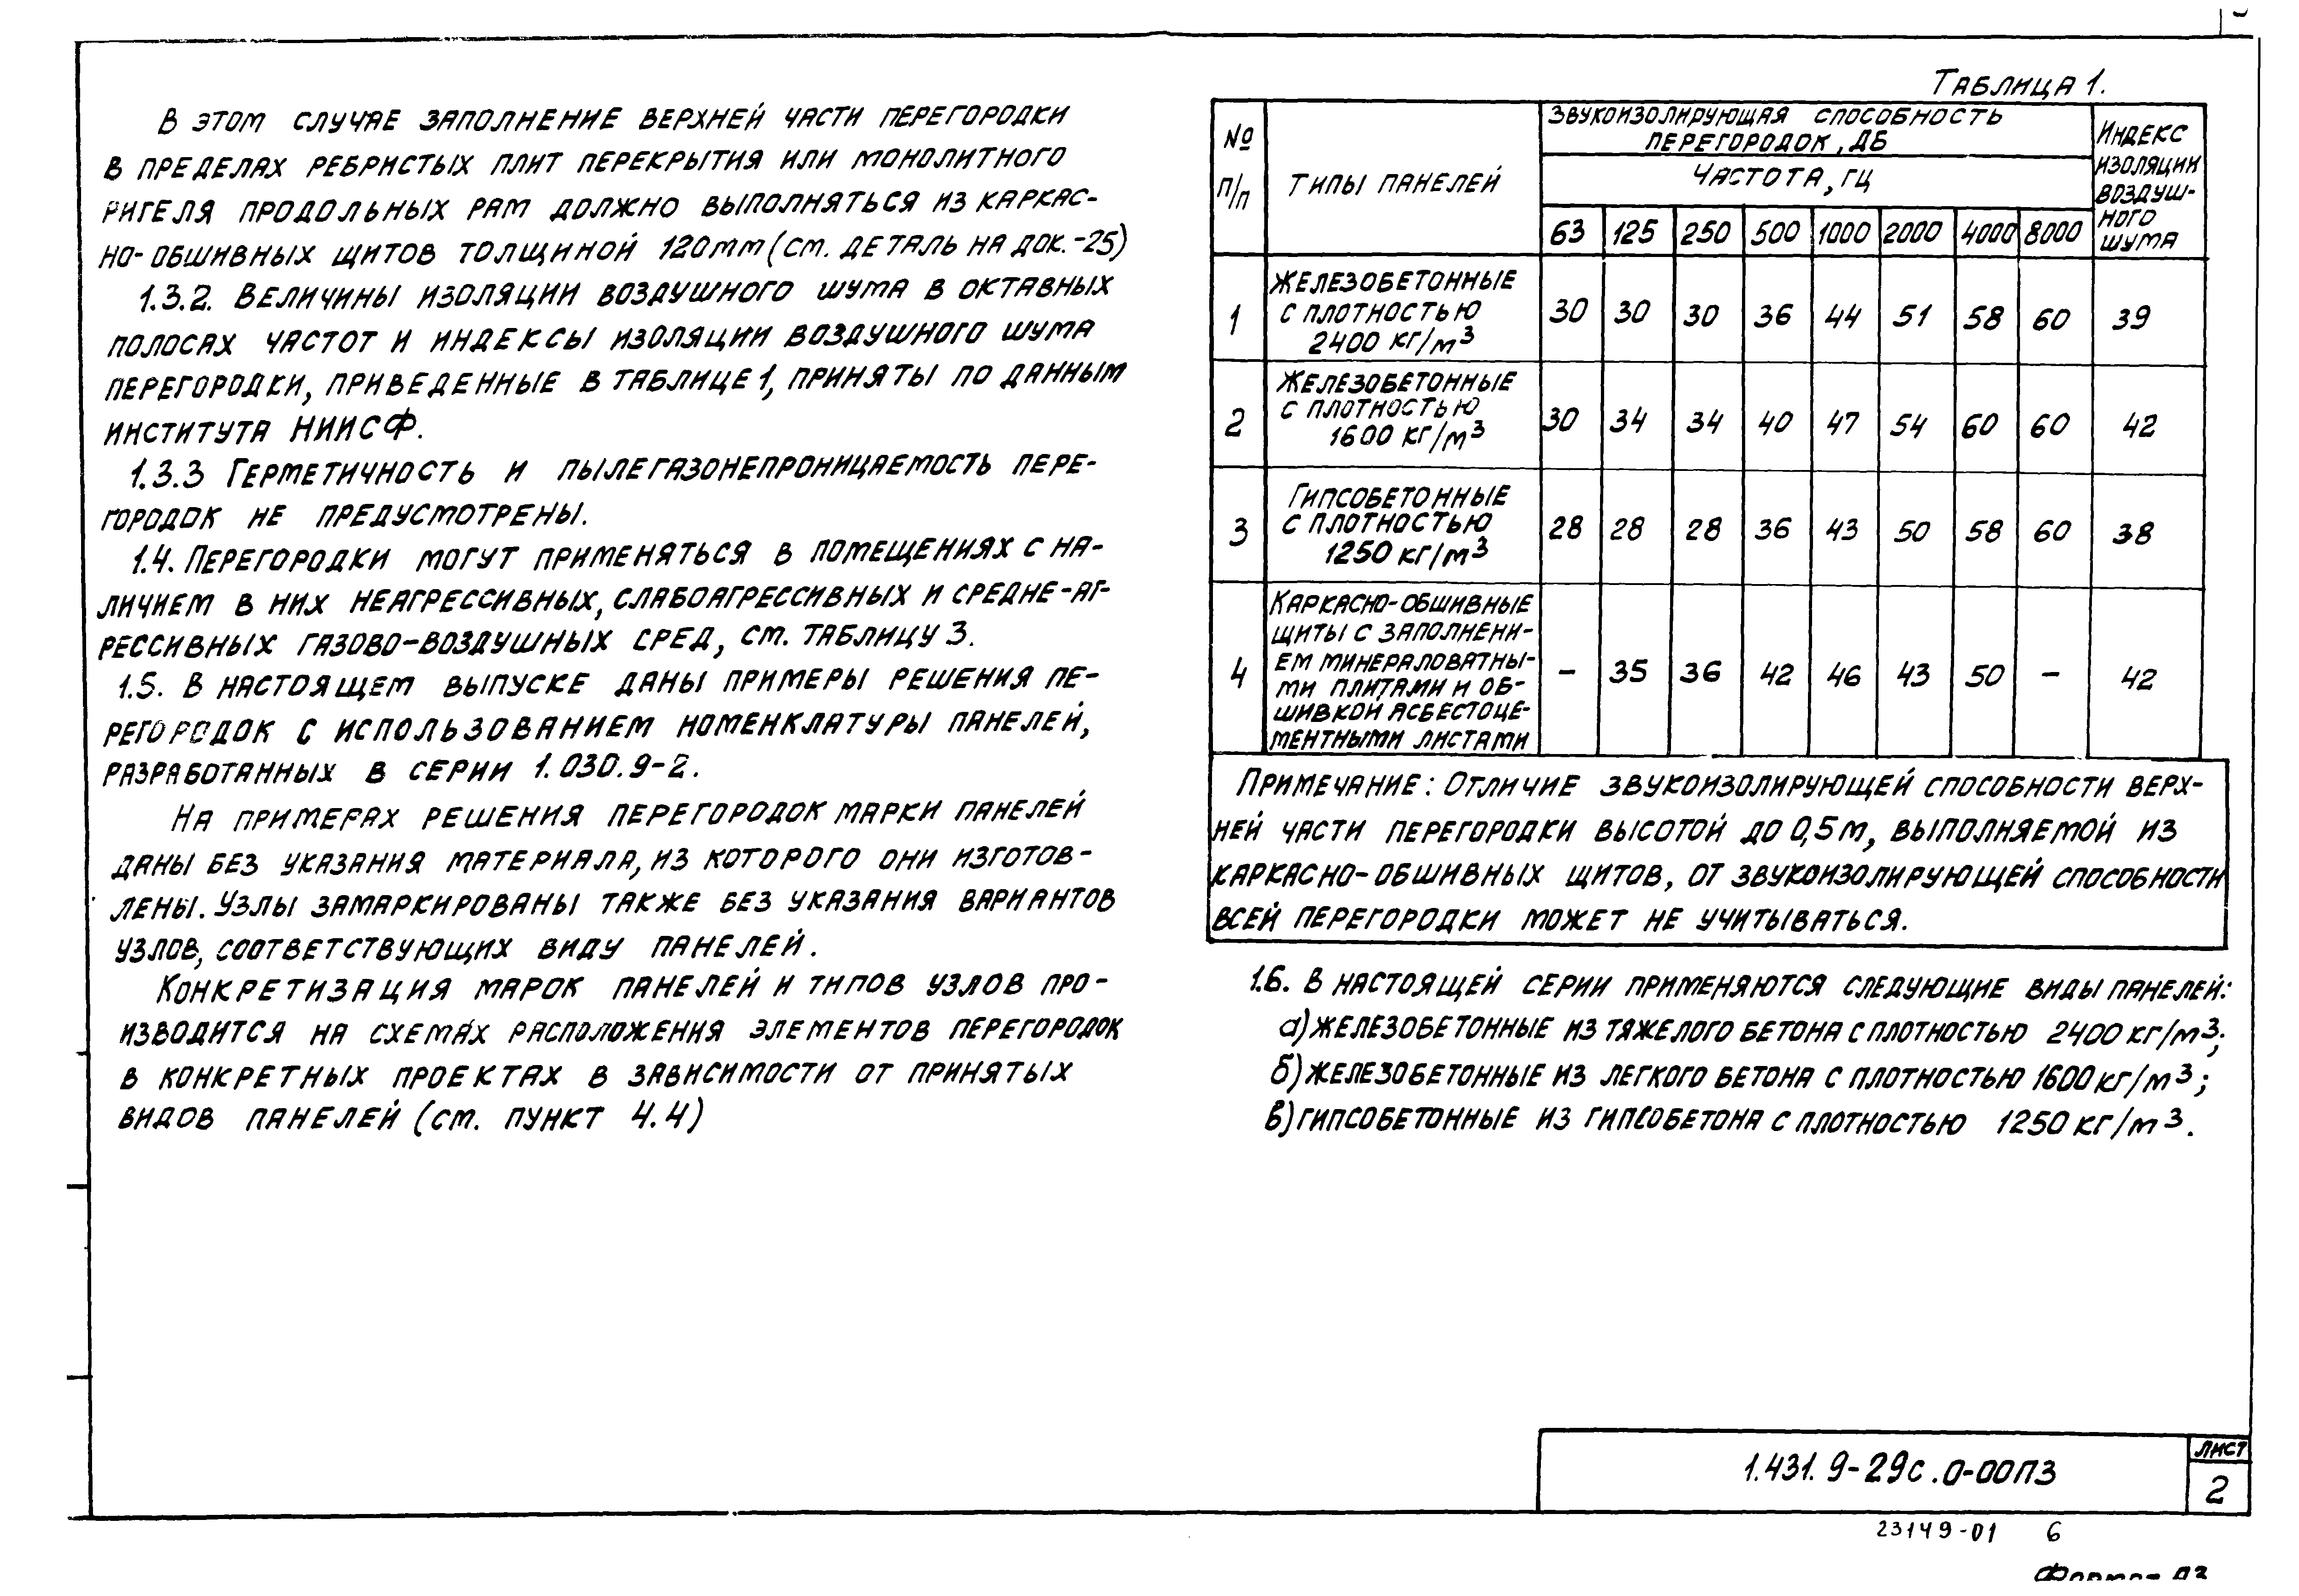 В этом случае заполнение верхней части перегородки
в пределах ребристых плит перекрытия или монолитного
ригеля продольных рам должно выполняться из каркас-
но-обшивных щитов толщиной 120мм (см. деталь на док.-25)
1.3.2. Величины изоляции воздушного шума в октавных
полосах частот и индексы изоляции воздушного шума
перегородки, приведенные в таблице 1, приняты по данным
института НИИСФ.
1.3.3 Герметичность и пылегазонепроницаемость пере-
городок не предусмотрены.
1.4. Перегородки могут применяться в помещениях с на-
личием в них неагрессивных, слабоагрессивных и средне-аг-
рессивных газово-воздушных сред, см. таблицу 3.
1.5. В настоящем выпуске даны примеры решения пе-
регородок с использованием номенклатуры панелей,
разработанных в серии 1.030.9-2.
На примерах решения перегородок марки панелей
даны без указания материала, из которого они изготов-
лены. Узлы замаркированы также без указания вариантов
узлов, соответствующих виду панелей.
Конкретизация марок панелей и типов узлов про-
изводится на схемах расположения элементов перегородок
в конкретных проектах в зависимости от принятых
видов панелей (см. пункт 4.4)
Таблица 1.
№ п/п
Типы панелей
Звукоизолирующая способность
перегородок, дБ
Частота, Гц
63 125 250 500 1000 2000 4000 8000
Индекс
изоляции
воздуш-
ного
шума
Железобетонные
с плотностью
2400 кг/м³
1 30 30 30 36 44 51 58 60 39
Железобетонные
с плотностью
1600 кг/м³
2 30 34 34 40 47 54 60 60 42
Гипсобетонные
с плотностью
1250 кг/м³
3 28 28 28 36 43 50 58 60 38
Каркасно-обшивные
щиты с заполнени-
ем минераловатны-
ми плитами и об-
шивкой асбестоце-
ментными листами
4 – 35 36 42 46 43 50 – 42
Примечание: Отличие звукоизолирующей способности верх-
ней части перегородки высотой до 0,5м, выполняемой из
каркасно-обшивных щитов, от звукоизолирующей способности
всей перегородки может не учитываться.
1.6. В настоящей серии применяются следующие виды панелей:
а) железобетонные из тяжелого бетона с плотностью 2400 кг/м³;
б) железобетонные из легкого бетона с плотностью 1600 кг/м³;
в) гипсобетонные из гипсобетона с плотностью 1250 кг/м³.
1.431.9-29с.0-00ПЗ
Лист
2
23149-01 6
Формат А3